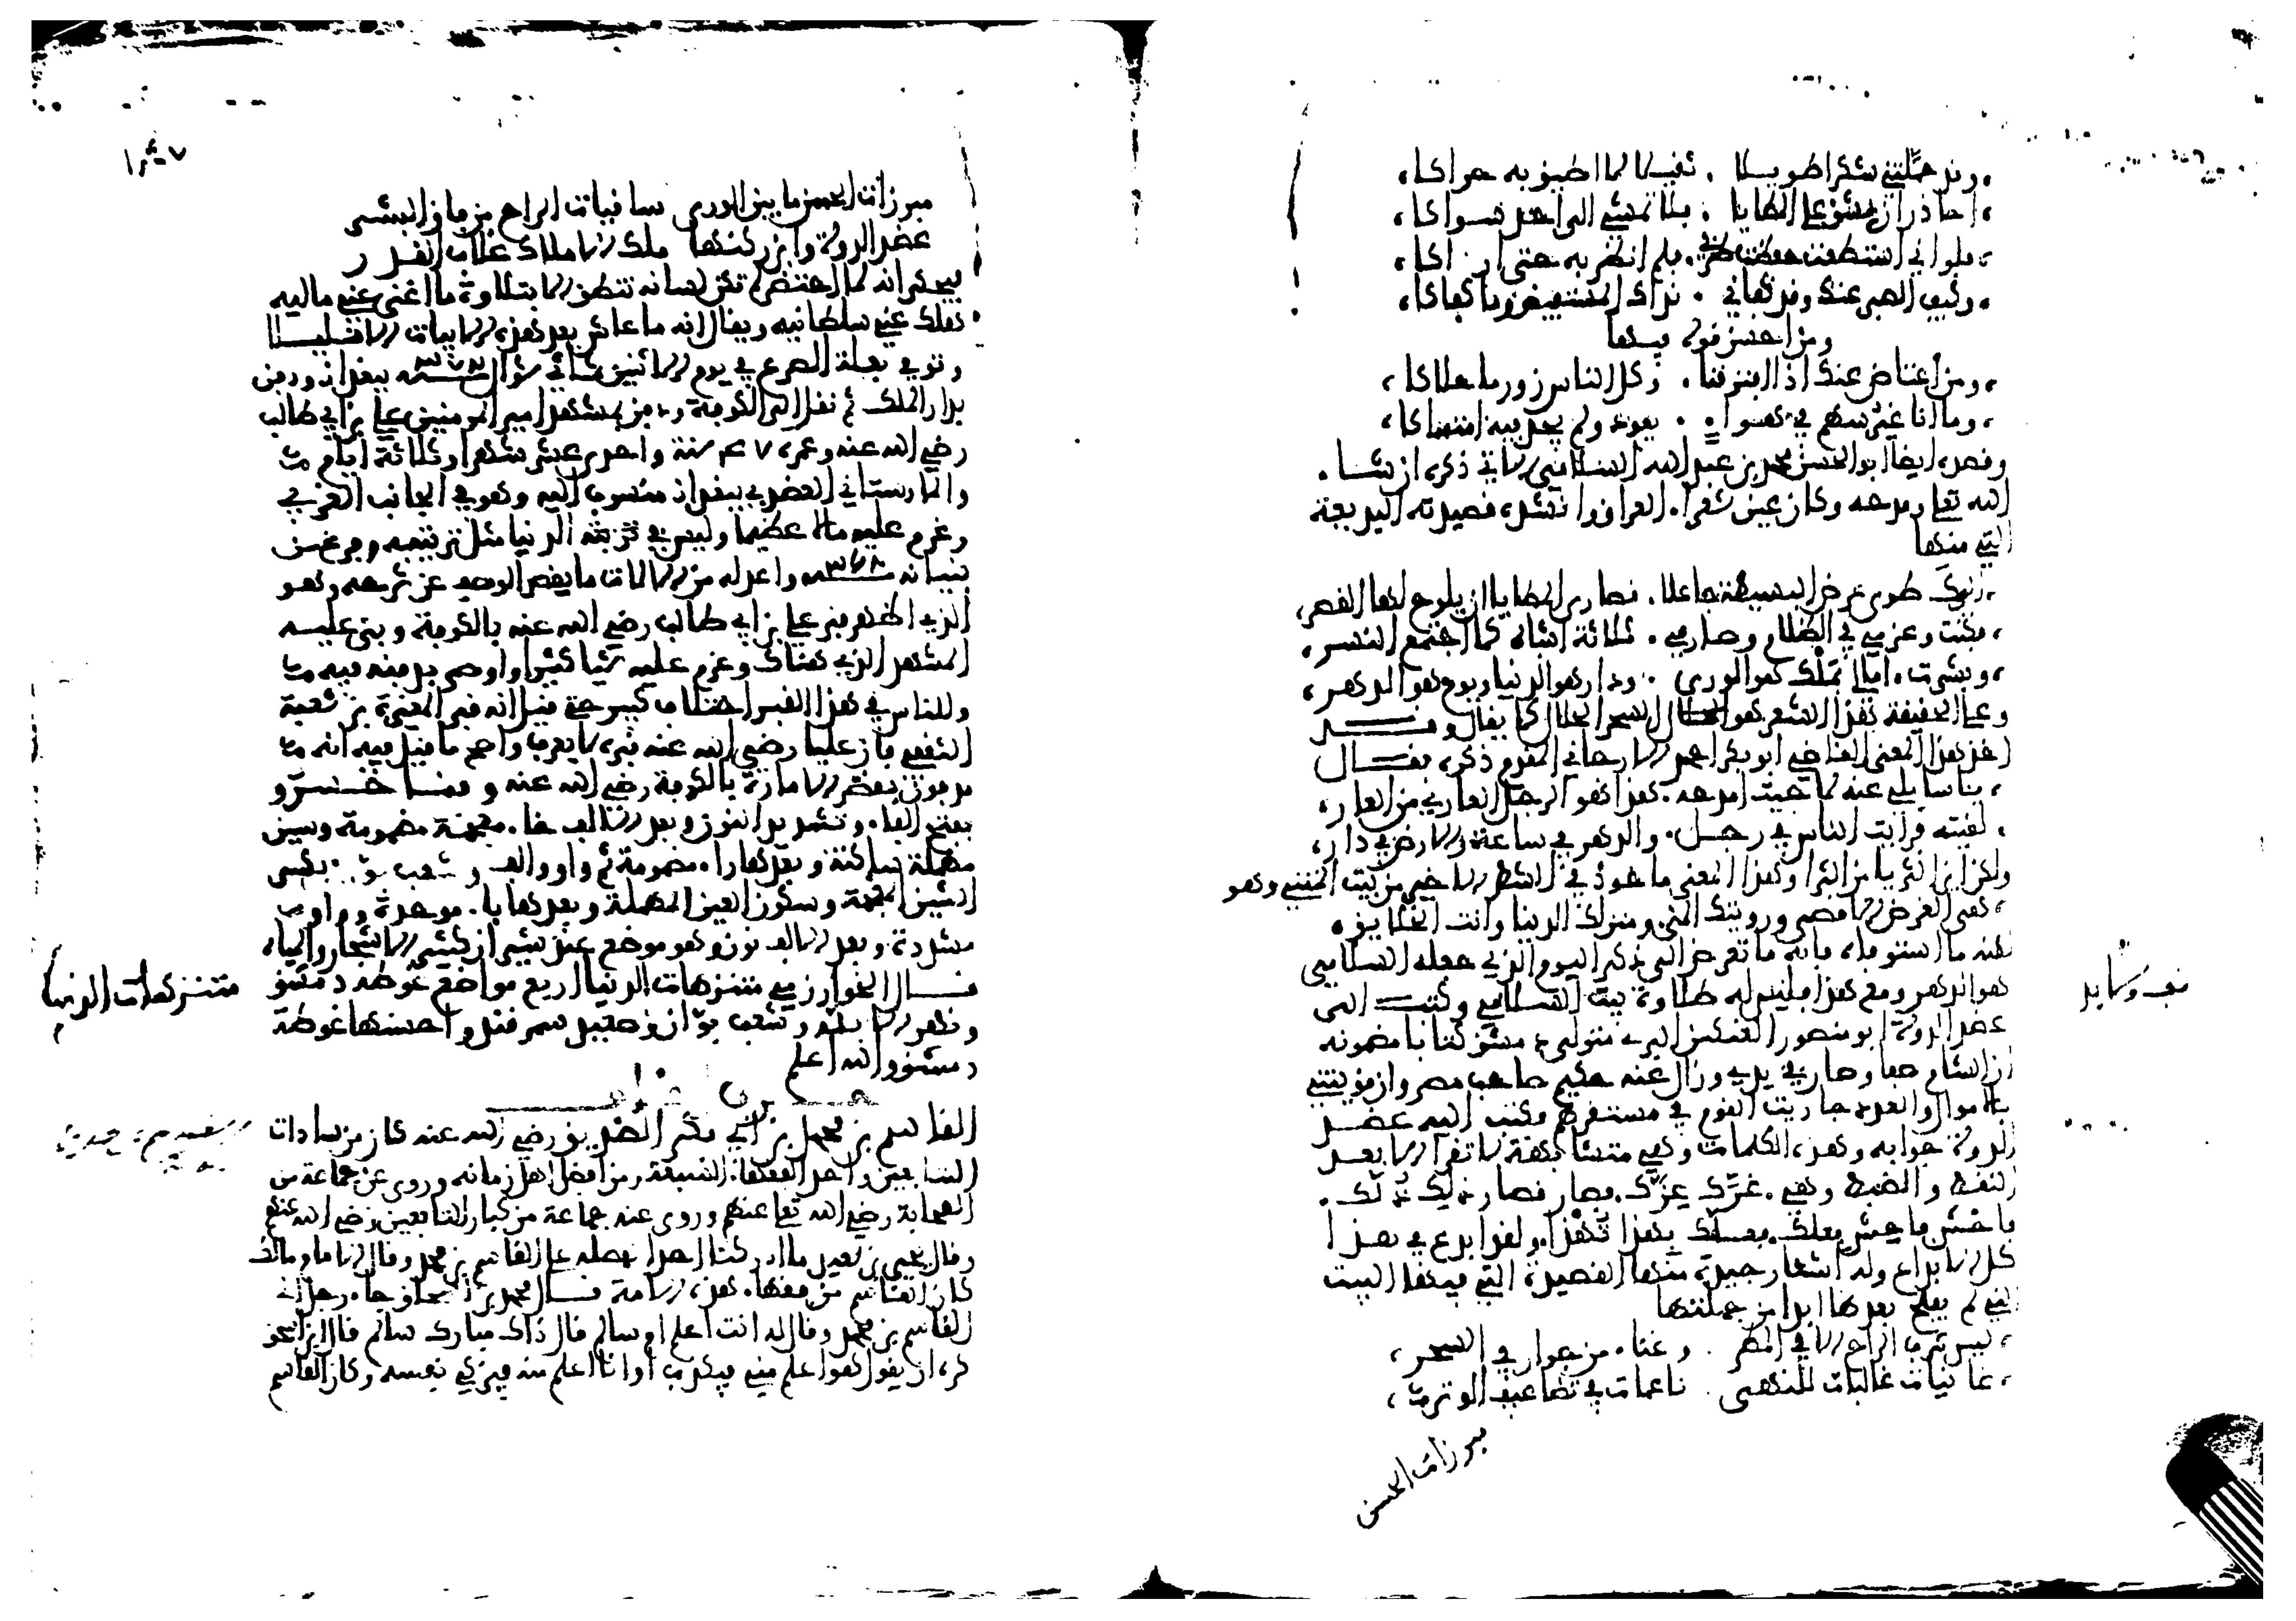 وقد حملتني شكرا طويلا . ثقيلا لا أطيق به حراكا
أحاذر أن يشق على المطايا . فلا تمشي الى احد سواكا
فلو اني استطعت خفضت طرفي . فلم انظر به حتى اراكا
وكيف الصبر عنك وقد كفاني . نداك المستفيض وما كفاكا
ومن احسن قوله فيها
ومن اعتاض عنك اذا افترقنا . وكل الناس زور ما خلاكا
وما انا غير سهم في هواء . يعود ولم يجد فيه امتساكا
وقصده ايضا ابو الحسن محمد بن عبد الله السلامي الاتي ذكره ان شاء
الله تعلى ومدحه وكان عين شعراء العراق وانشده قصيدته البديعة
التي منها
اليك طوى عرض البسيطة جاعلا . قصارى المطايا ان يلوح لها القصر
فكنت وعزمي في الظلام وصارمي . ثلاثة اشباه كما اجتمع النسر
وبشرت امالي بملك هو الورى . ودار هي الدنيا ويوم هو الدهر
وعلى الحقيقة هذا الشعر هو السحر الحلال كما يقال وقد
اخذ هذا المعنى القاضي ابو بكر احمد الارجاني المقدم ذكره فقال
يا سايلي عنه لما جيت امدحه . هذا هو الرجل العاري من العار
لقيته فرايت الناس في رجل . والدهر في ساعة والارض في دار
ولكن اين الثريا من الثرا وهذا المعنى ماخوذ في الشطر الاخير من بيت المتنبي وهو
هي الغرض الاقصى ورويتك المنى ومنزلك الدنيا وانت الخلايق
لكنه ما استوفاه فانه ما تعرض الى ذكر اليوم الذي جعله السلامي
هو الدهر ومع هذا فليس له طلاوة بيت السلامي وكتب الى
عضد الدولة ابو منصور افتكين التركي متولي دمشق كتابا مضمونه
ان الشام صفا وصار في يدي وزال عنه حكم صاحب مصر وان قويتني
بالاموال والعدد حاربت القوم في مستقرهم فكتب اليه عضد
الدولة جوابه وهذه الكلمات وهي متشابهة لا تقرا الا بعد
النقط والضبط وهي . غرك عزك . فصار قصار ذلك ذلك .
فاخش فاحش فعلك فعلك بهذا تهدا . ولقد ابدع في هذا
كل الابداع وله اشعار جيدة منها القصيدة التي فيها البيت
الذي لم يفلح بعدها ابدا من جملتها
ليس شرب الراح الا في المطر . وغناء من جوار في السحر
غانيات غالبات للنهى . ناعمات في تضاعيف الوتر
مبرزات الحسن
مبرزات الحسن ما بين الورى ساقيات الراح من فاق البشر
عضد الدولة وابن ركنها ملك الاملاك غلاب القدر
فيحكى انه لما احتضر لم تكن لسانه تنطق الا بتلاوة ما اغنى عني ماليه
هلك عني سلطانيه ويقال انه ما عاش بعد هذه الابيات الا قليلا
وتوفي بعلة الصرع في يوم الاثنين ثامن شوال ٣٧٢ ببغداذ ودفن
بدار الملك ثم نقل الى الكوفة ودفن بمشهد امير المومنين علي بن ابي طالب
رضي الله عنه وعمره ٤٧ سنة واحدى عشر شهرا وثلاثة ايام
والمارستان العضدي ببغداذ منسوب اليه وهو في الجانب الغربي
وغرم عليه مالا عظيما وليس في الدنيا مثل ترتيبه وفرغ من
بنيانه ٣٦٨ واعد له من الالات ما يقصر الوصف عن شرحه وهو
الذي اظهر قبر علي بن ابي طالب رضي الله عنه بالكوفة وبنى عليه
المشهد الذي هناك وغرم عليه شيا كثيرا واوصى بدفنه فيه
وللناس في هذا القبر اختلاف كثير حتى قيل انه قبر المغيرة بن شعبة
الثقفي فان عليا رضي الله عنه قبره لا يعرف واصح ما قيل فيه انه
مدفون بقصر الامارة بالكوفة رضي الله عنه وفنا خسرو
بفتح الفاء وتشديد النون وبعد الالف خاء معجمة مضمومة وسين
مهملة ساكنة وبعدها راء مضمومة ثم واو والف وشعب بوان بكسر
الشين المعجمة وسكون العين المهملة وبعدها باء موحدة وواو
مشددة وبعد الالف نون وهو موضع عند شيراز كثير الاشجار والمياه
قال الخوارزمي متنزهات الدنيا اربع مواضع غوطة دمشق
ونهر الابلة وشعب بوان وصغد سمرقند واحسنها غوطة
دمشق والله اعلم
القاسم بن محمد بن ابي بكر الصديق رضي الله عنه كان من سادات
التابعين واحد الفقهاء السبعة ومن افضل اهل زمانه وروى عن جماعة من
الصحابة رضي الله تعلى عنهم وروى عنه جماعة من كبار التابعين رضي الله عنهم
وقال يحيى بن سعيد ما ادركنا احدا نفضله على القاسم بن محمد وقال الامام مالك
كان القاسم من فقهاء هذه الامة قال محمد بن اسحاق جاء رجل الى
القاسم بن محمد وقال له انت اعلم او سالم قال ذاك مبارك سالم قال ابن اسحق
كره ان يقول هو اعلم مني فيكذب أو انا اعلم منه فيزكي نفسه وكان القاسم
متنزهات الدنيا